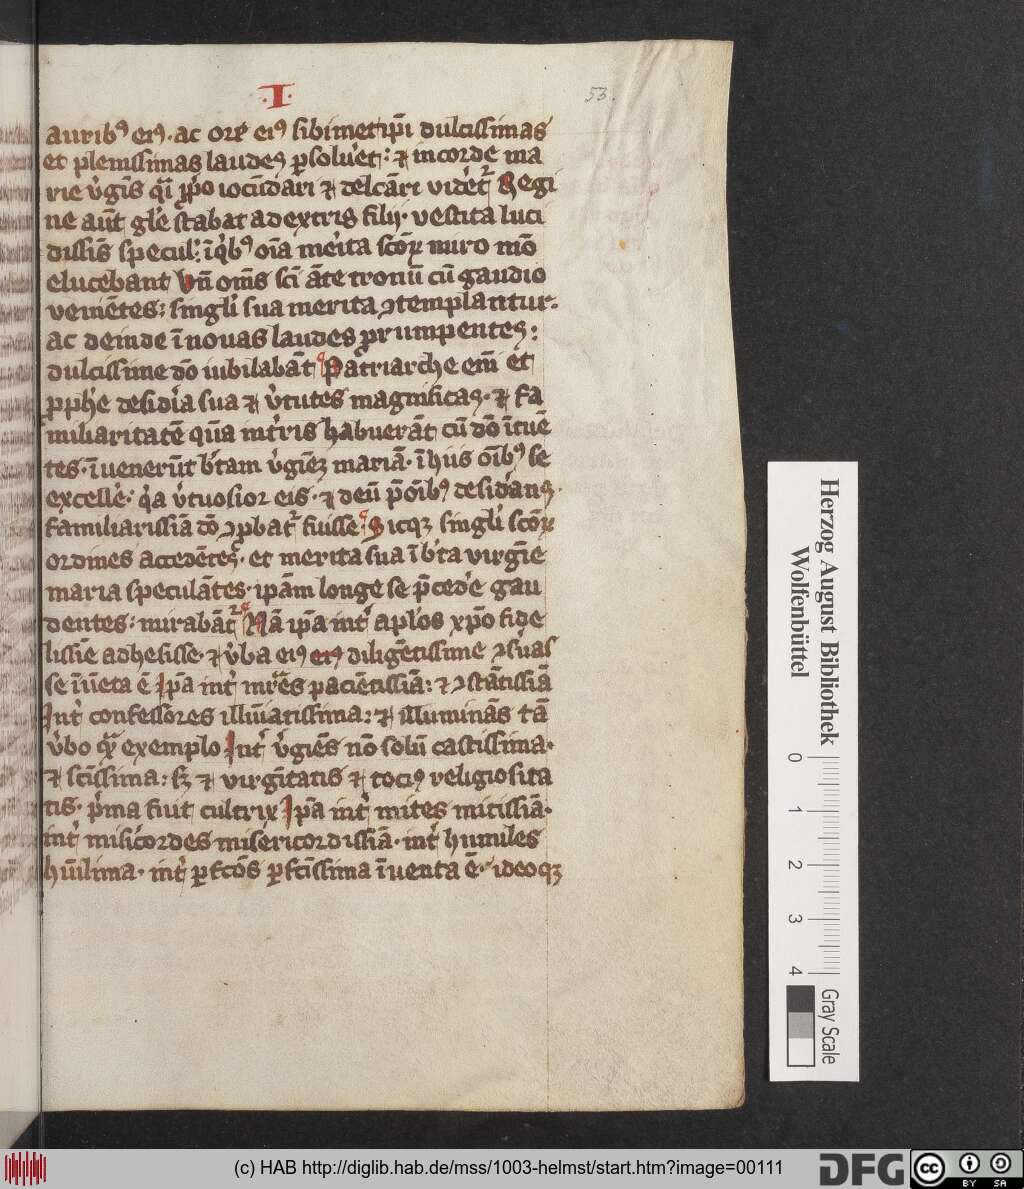 ·I·
53.
auribꝰ eiꝰ. ac ore eiꝰ sibimetip̄i dulcissimas
et plenissimas laudes ꝑsoluet: ⁊ in corde ma
rie v̓gīs iocūdari ⁊ videt᷑ Regi
ne aūt gl̓e stabat adextris filij. vestita luci
dissīs specul̓: ī qͥbꝰ oīa merita sc̄oꝝ miro mō
elucebant vn̄ om̄s sc̄i āte tronū cū gaudio
veniētes: singl̓i sua merita ꝯtemplantur.
ac deinde ī nouas laudes prumpentes:
dulcissime dō iubilabāt Patriarche em̄ et
ꝓph̓e desid̓ia sua ⁊ v̓tutes magnificas. ⁊ fa
miliaritatē quā int̓ris habuerāt cū dō ītuē
tes. īuenerūt b̓tam v̓giēꝫ mariā. ī hiis oībꝰ se
excelle̓. qͥa v̓tuosior eis. ⁊ deū p̄ oībꝰ desid̓ans.
familiarissiā dō ꝯꝓbat᷑ fuisse. Sicqꝫ singl̓i sc̄oꝝ
ordines accedētes. et merita sua ī b̓ta virgīe
maria speculātes. ip̄am longe se p̄cede̓ gau
dentes: mirabāt᷑ Nā ip̄a int̓ apl̓os xp̄o fide
lissīe adhesisse. ⁊ v̓ba eiꝰ eiꝰ diligētissime ꝯs̓uas
se īuēta ē Ip̄a int̓ mr̄es paciētissiā: ⁊ ꝯstātissiā
Int̓ confessores illūiatissima: ⁊ illuminās tā
v̓bo qͣ exemplo Int̓ v̓gīes nō solū castissima.
⁊ sc̄issima: sꝫ ⁊ virgītatis ⁊ tociꝰ religiosita
tis. pͥma fuit cultrix Ip̄a int̓ mites mitissiā.
int̓ mis̓icordes misericordissiā. int̓ humiles
hūilima. int̓ ꝑfcōs ꝑfcīssima īuenta ē. ideoqꝫ
Herzog August Bibliothek
Wolfenbüttel
0 1 2 3 4
Gray Scale
(c) HAB http://diglib.hab.de/mss/1003-helmst/start.htm?image=00111
DFG
cc
BY SA